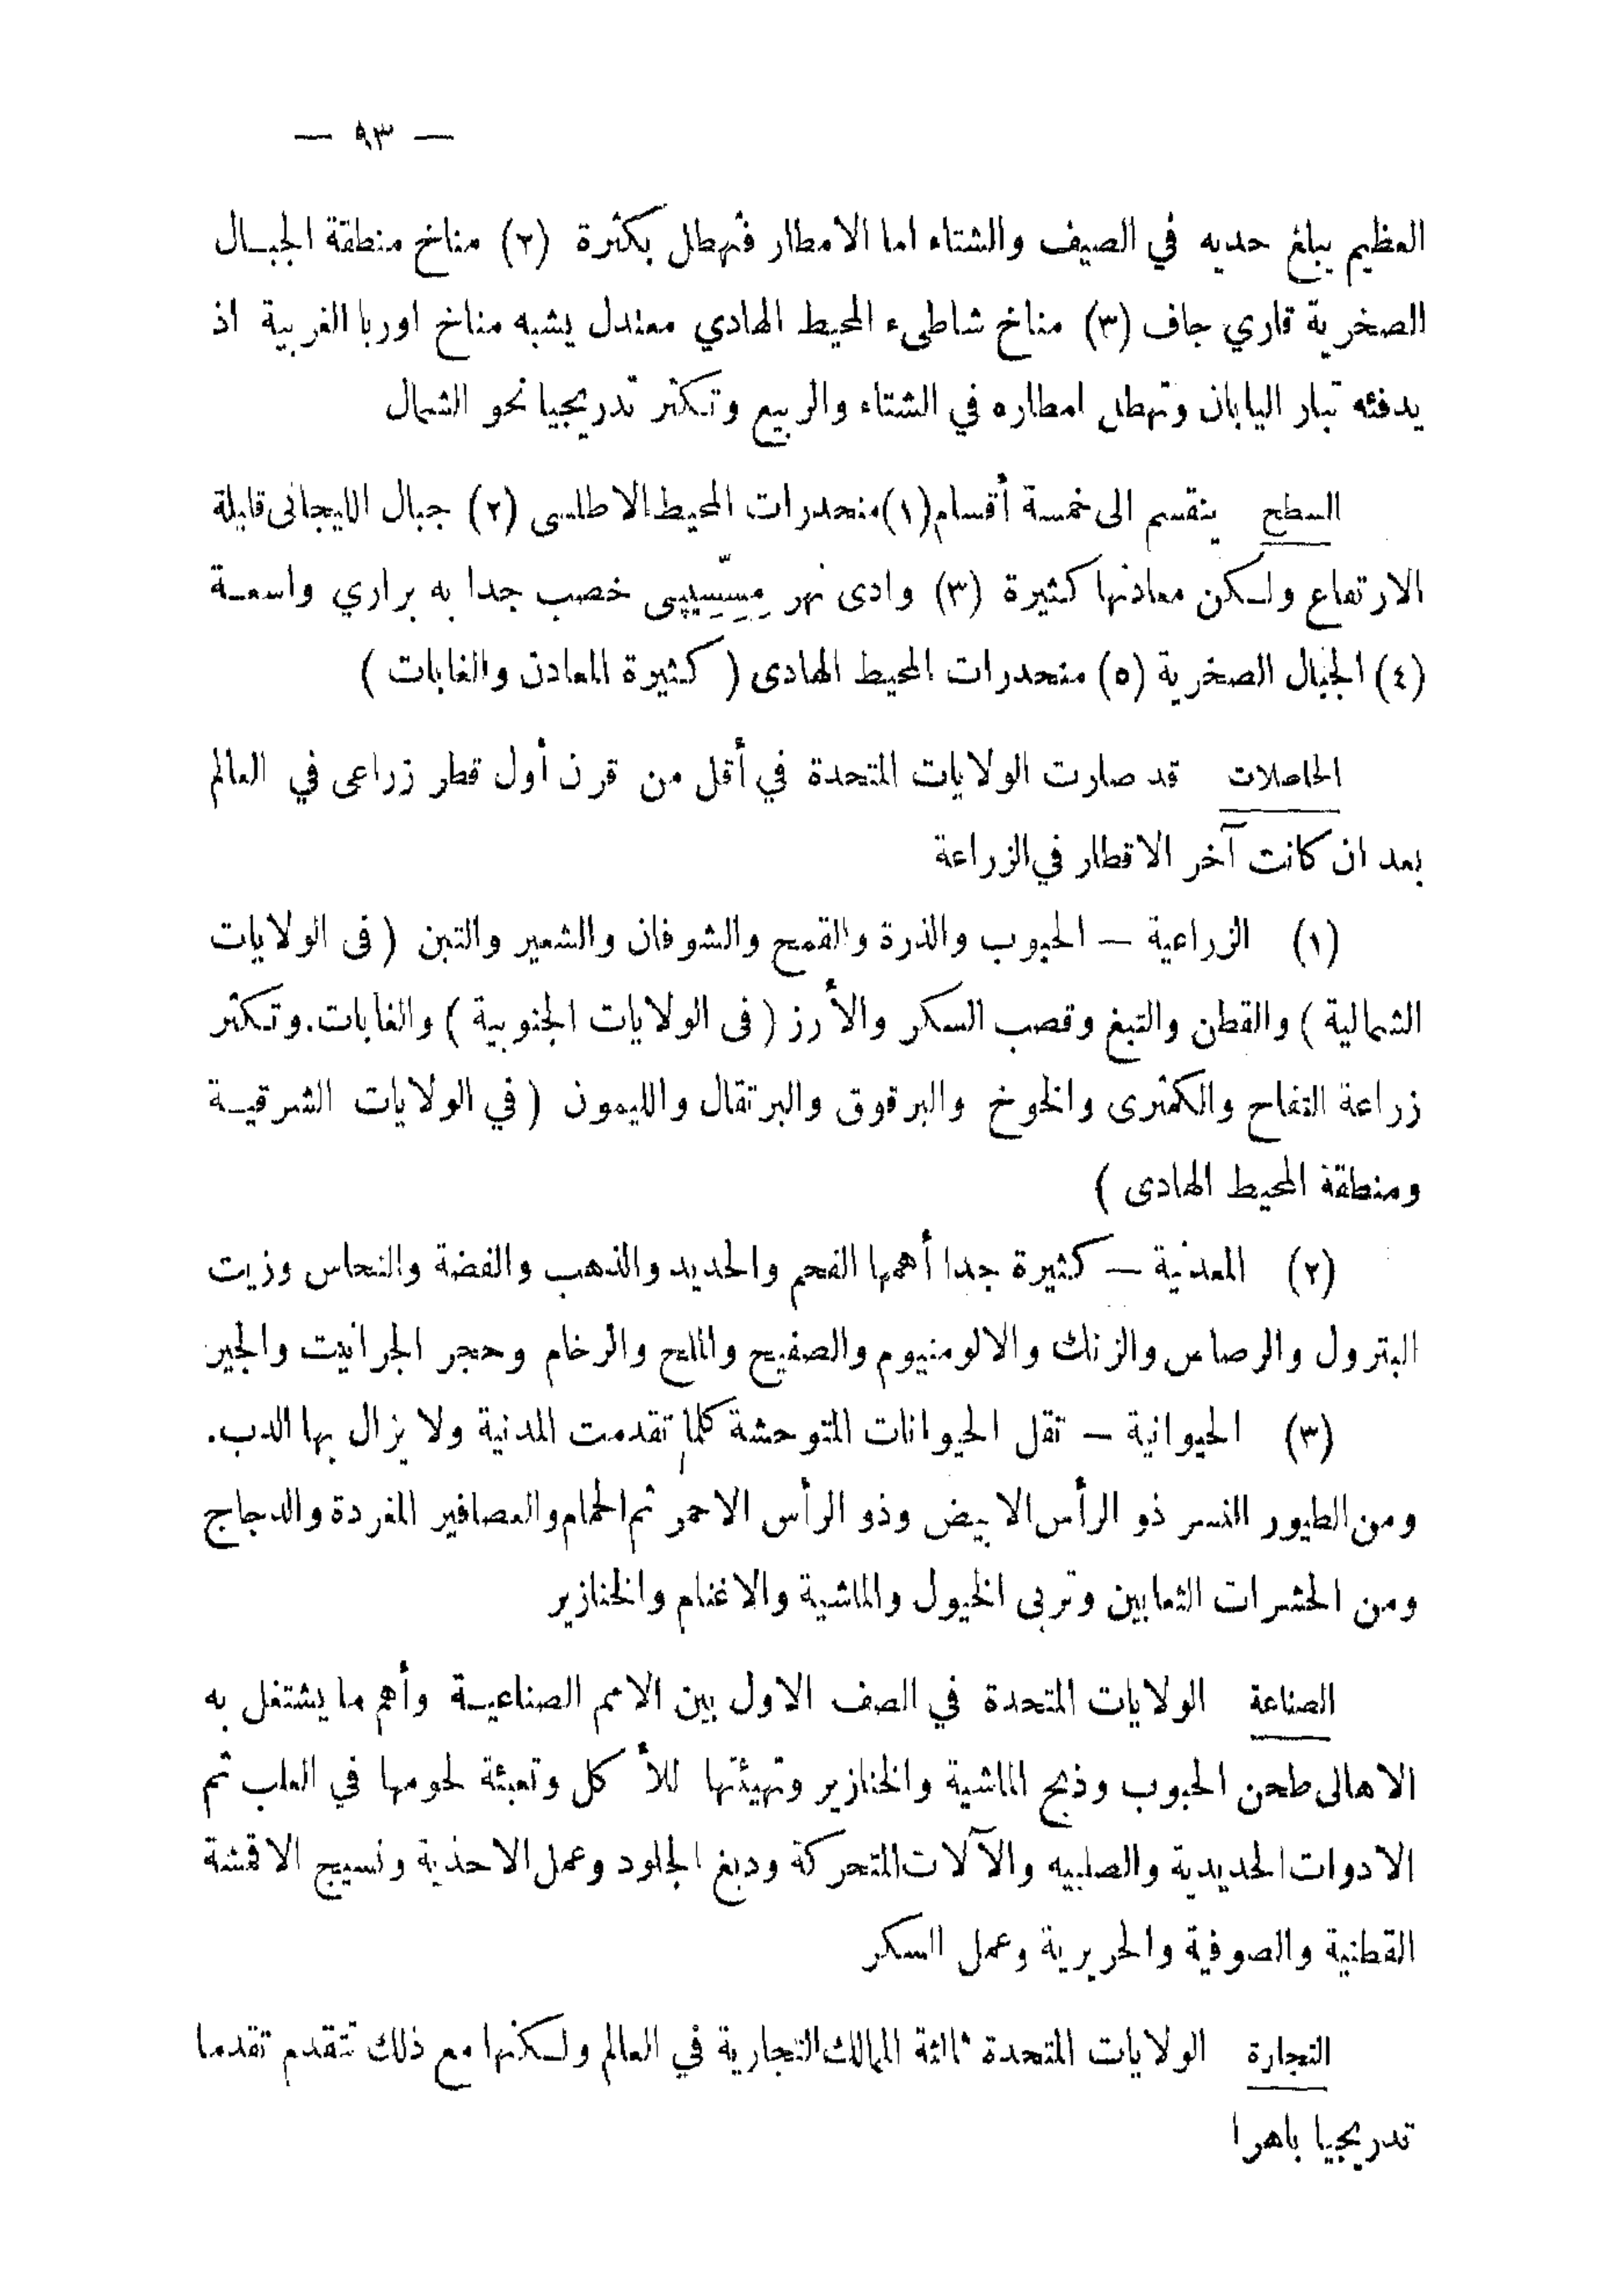 — ٩٣ —
العظيم يبلغ حديه في الصيف والشتاء اما الامطار فتهطل بكثرة (٢) مناخ منطقة الجبال
الصخرية قاري جاف (٣) مناخ شاطىء المحيط الهادي معتدل يشبه مناخ اوربا الغربية اذ
يدفئه تيار اليابان وتهطل امطاره في الشتاء والربيع وتكثر تدريجيا نحو الشمال
السطح ينقسم الى خمسة أقسام (١) منحدرات المحيط الاطلسى (٢) جبال الليجانى قليلة
الارتفاع ولكن معادنها كثيرة (٣) وادى نهر مِسِّسِيپى خصب جدا به براري واسعة
(٤) الجبال الصخرية (٥) منحدرات المحيط الهادى ( كثيرة المعادن والغابات )
الحاصلات قد صارت الولايات المتحدة في أقل من قرن أول قطر زراعى في العالم
بعد ان كانت آخر الاقطار في الزراعة
(١) الزراعية — الحبوب والذرة والقمح والشوفان والشعير والتبن ( فى الولايات
الشمالية ) والقطن والتبغ وقصب السكر والأرز ( فى الولايات الجنوبية ) والغابات. وتكثر
زراعة التفاح والكمثرى والخوخ والبرقوق والبرتقال والليمون ( في الولايات الشرقية
ومنطقة المحيط الهادى )
(٢) المعدنية — كثيرة جدا أهمها الفحم والحديد والذهب والفضة والنحاس وزيت
البترول والرصاص والزنك والالومنيوم والصفيح والملح والرخام وحجر الجرانيت والجير
(٣) الحيوانية — تقل الحيوانات المتوحشة كلما تقدمت المدنية ولا يزال بها الدب.
ومن الطيور النسر ذو الرأس الابيض وذو الرأس الاحمر ثم الحمام والعصافير المغردة والدجاج
ومن الحشرات الثعابين وتربى الخيول والماشية والاغنام والخنازير
الصناعة الولايات المتحدة في الصف الاول بين الامم الصناعية وأهم ما يشتغل به
الاهالى طحن الحبوب وذبح الماشية والخنازير وتهيئتها للأكل وتعبئة لحومها في العلب ثم
الادوات الحديدية والصلبيه والآلات المتحركة ودبغ الجلود وعمل الاحذية ونسيج الاقمشة
القطنية والصوفية والحريرية وعمل السكر
التجارة الولايات المتحدة ثالثة الممالك التجارية في العالم ولكنها مع ذلك تتقدم تقدما
تدريجيا باهرا